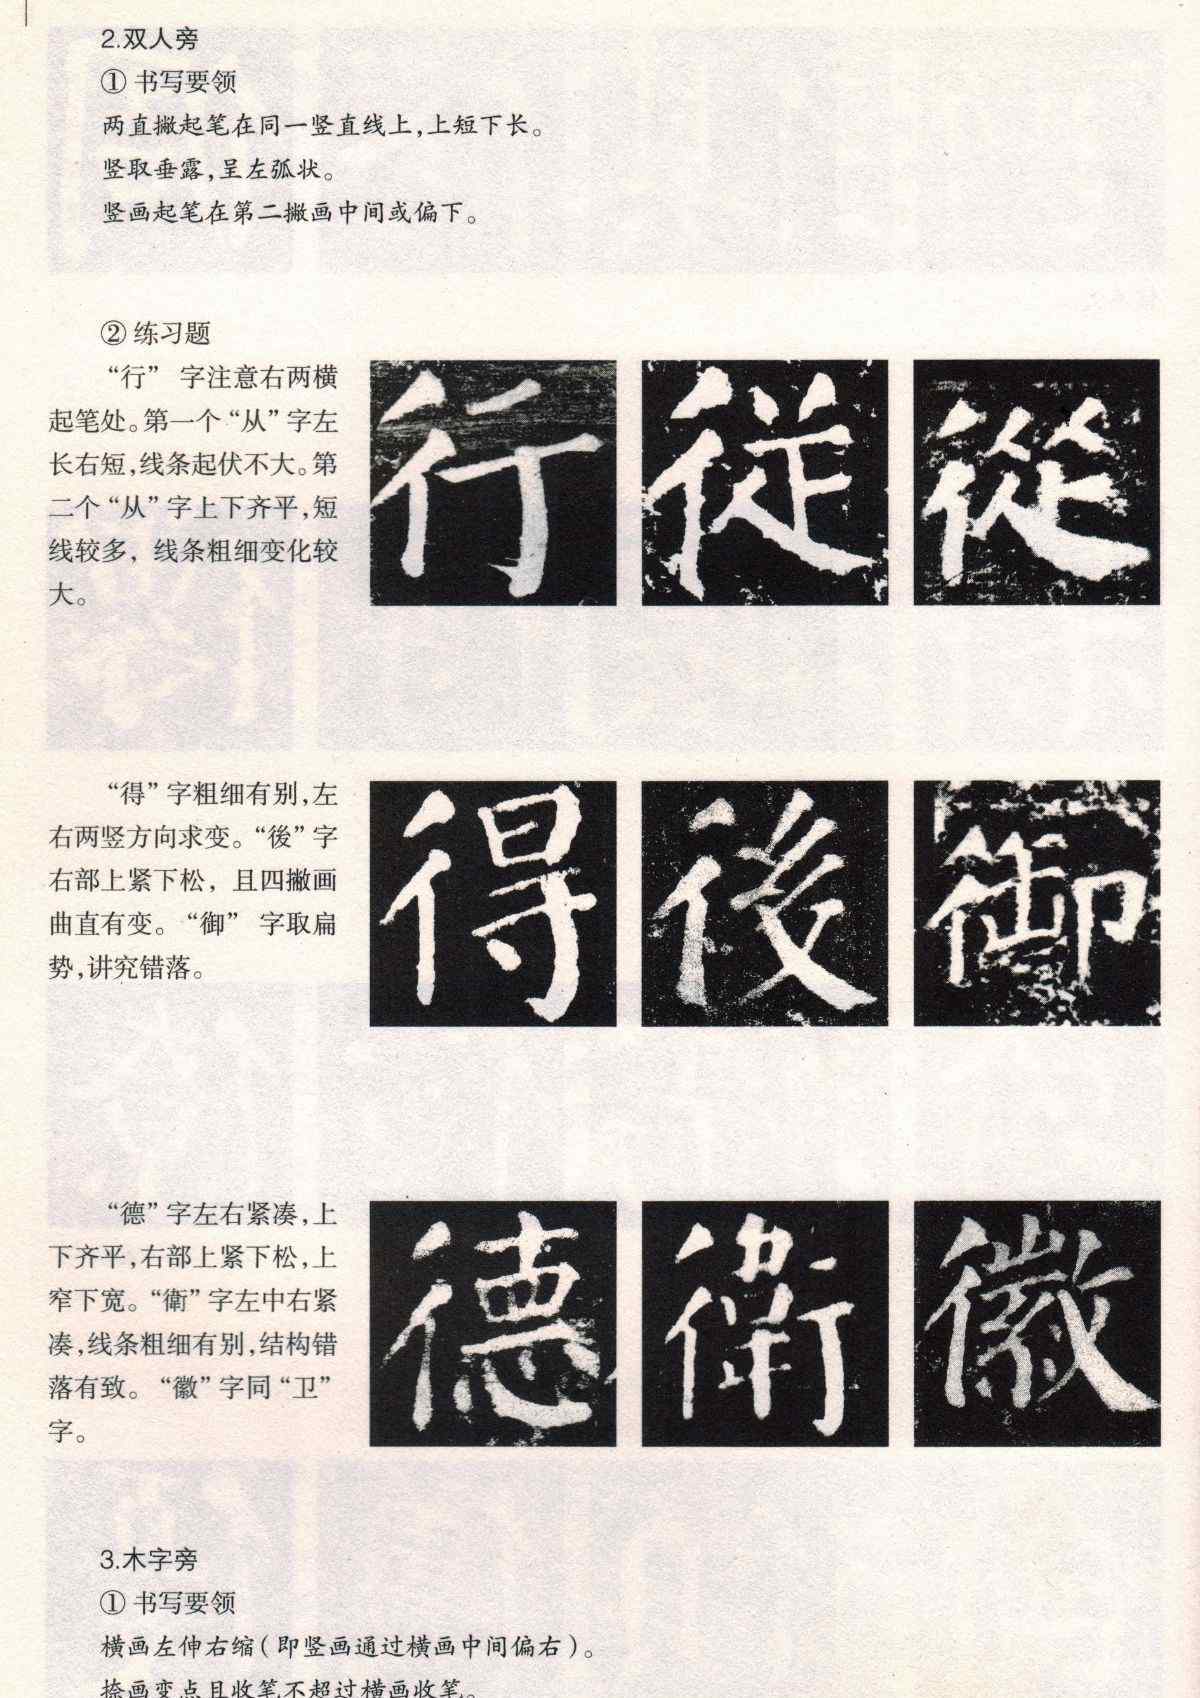 2.双人旁
① 书写要领
两直撇起笔在同一竖直线上,上短下长。
竖取垂露,呈左弧状。
竖画起笔在第二撇画中间或偏下。
② 练习题
“行” 字注意右两横
起笔处。第一个“从”字左
长右短,线条起伏不大。第
二个“从”字上下齐平,短
线较多, 线条粗细变化较
大。
行 従 從
“得”字粗细有别,左
右两竖方向求变。“後”字
右部上紧下松, 且四撇画
曲直有变。“御” 字取扁
势,讲究错落。
得 後 御
“德”字左右紧凑,上
下齐平,右部上紧下松,上
窄下宽。“衛”字左中右紧
凑,线条粗细有别,结构错
落有致。“徽”字同“卫”
字。
德 衛 徽
3.木字旁
① 书写要领
横画左伸右缩(即竖画通过横画中间偏右)。
捺画变点且收笔不超过横画收笔。